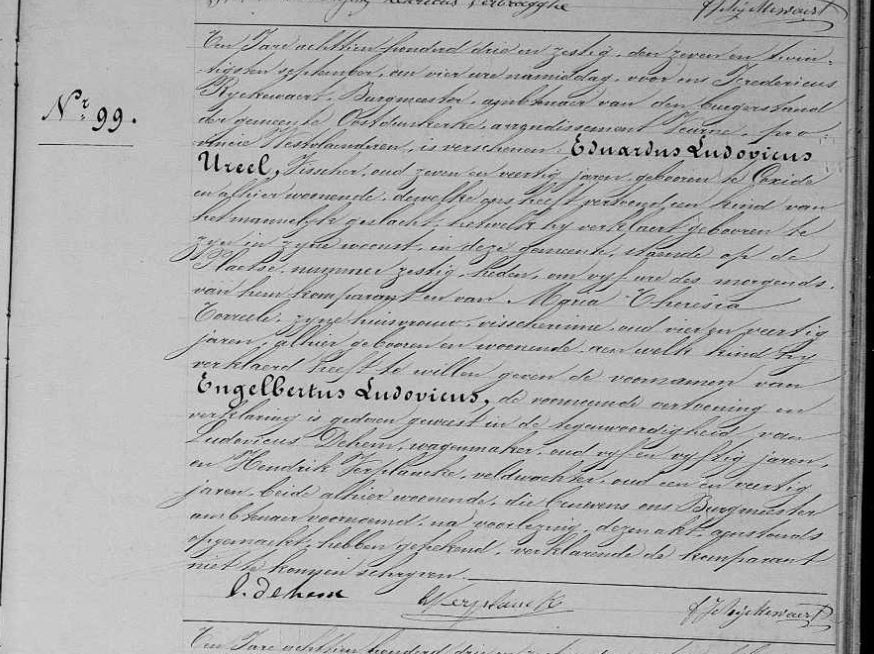 Ludovicus Verbrugghe fr Ryckewaert
Ten Jare achttien honderd drie en zestig, den zeven en twin-
tigsten september, om vier ure namiddag, voor ons Fredericus
Ryckewaert, Burgmeester, ambtenaer van den burgerstand
der gemeente Oostduinkerke, arrondissement Veurne, pro-
Nr 99. vincie Westvlaenderen, is verschenen Eduardus Ludovicus
Ureel, Visscher, oud zeven en veertig jaren, gebooren te Coxide
en alhier woonende, dewelke ons heeft vertoond een kind van
het mannelyk geslacht, hetwelk hy verklaert gebooren te
zyn in zyne woonst, in deze gemeente, staende op de
Plaetse, nummer zestig, heden, om vyf ure des morgends,
van hem komparant en van Maria Theresia
zyne huisvrouw, visscherinne, oud vier en veertig
jaren, alhier gebooren en woonende, aen welk kind hy
verklaerd heeft te willen geven de voornamen van
Engelbertus Ludovicus, de voornoemde vertooning en
verklaring is gedaen geweest in de tegenwoordigheid van
Ludovicus Dehem, wagenmaker, oud vyf en vyftig jaren,
en Hendrik Verplancke, veldwachter, oud een en veertig
jaren, beide alhier woonende, die benevens ons Burgmeester
ambtenaer voornoemd, na voorlezing, dezen akt, opstonds
opgemaekt, hebben geteekend, verklarende de komparant
niet te konnen schryven.
L. Dehem Verplancke fr Ryckewaert
Ten Jare achttien honderd drie en zestig